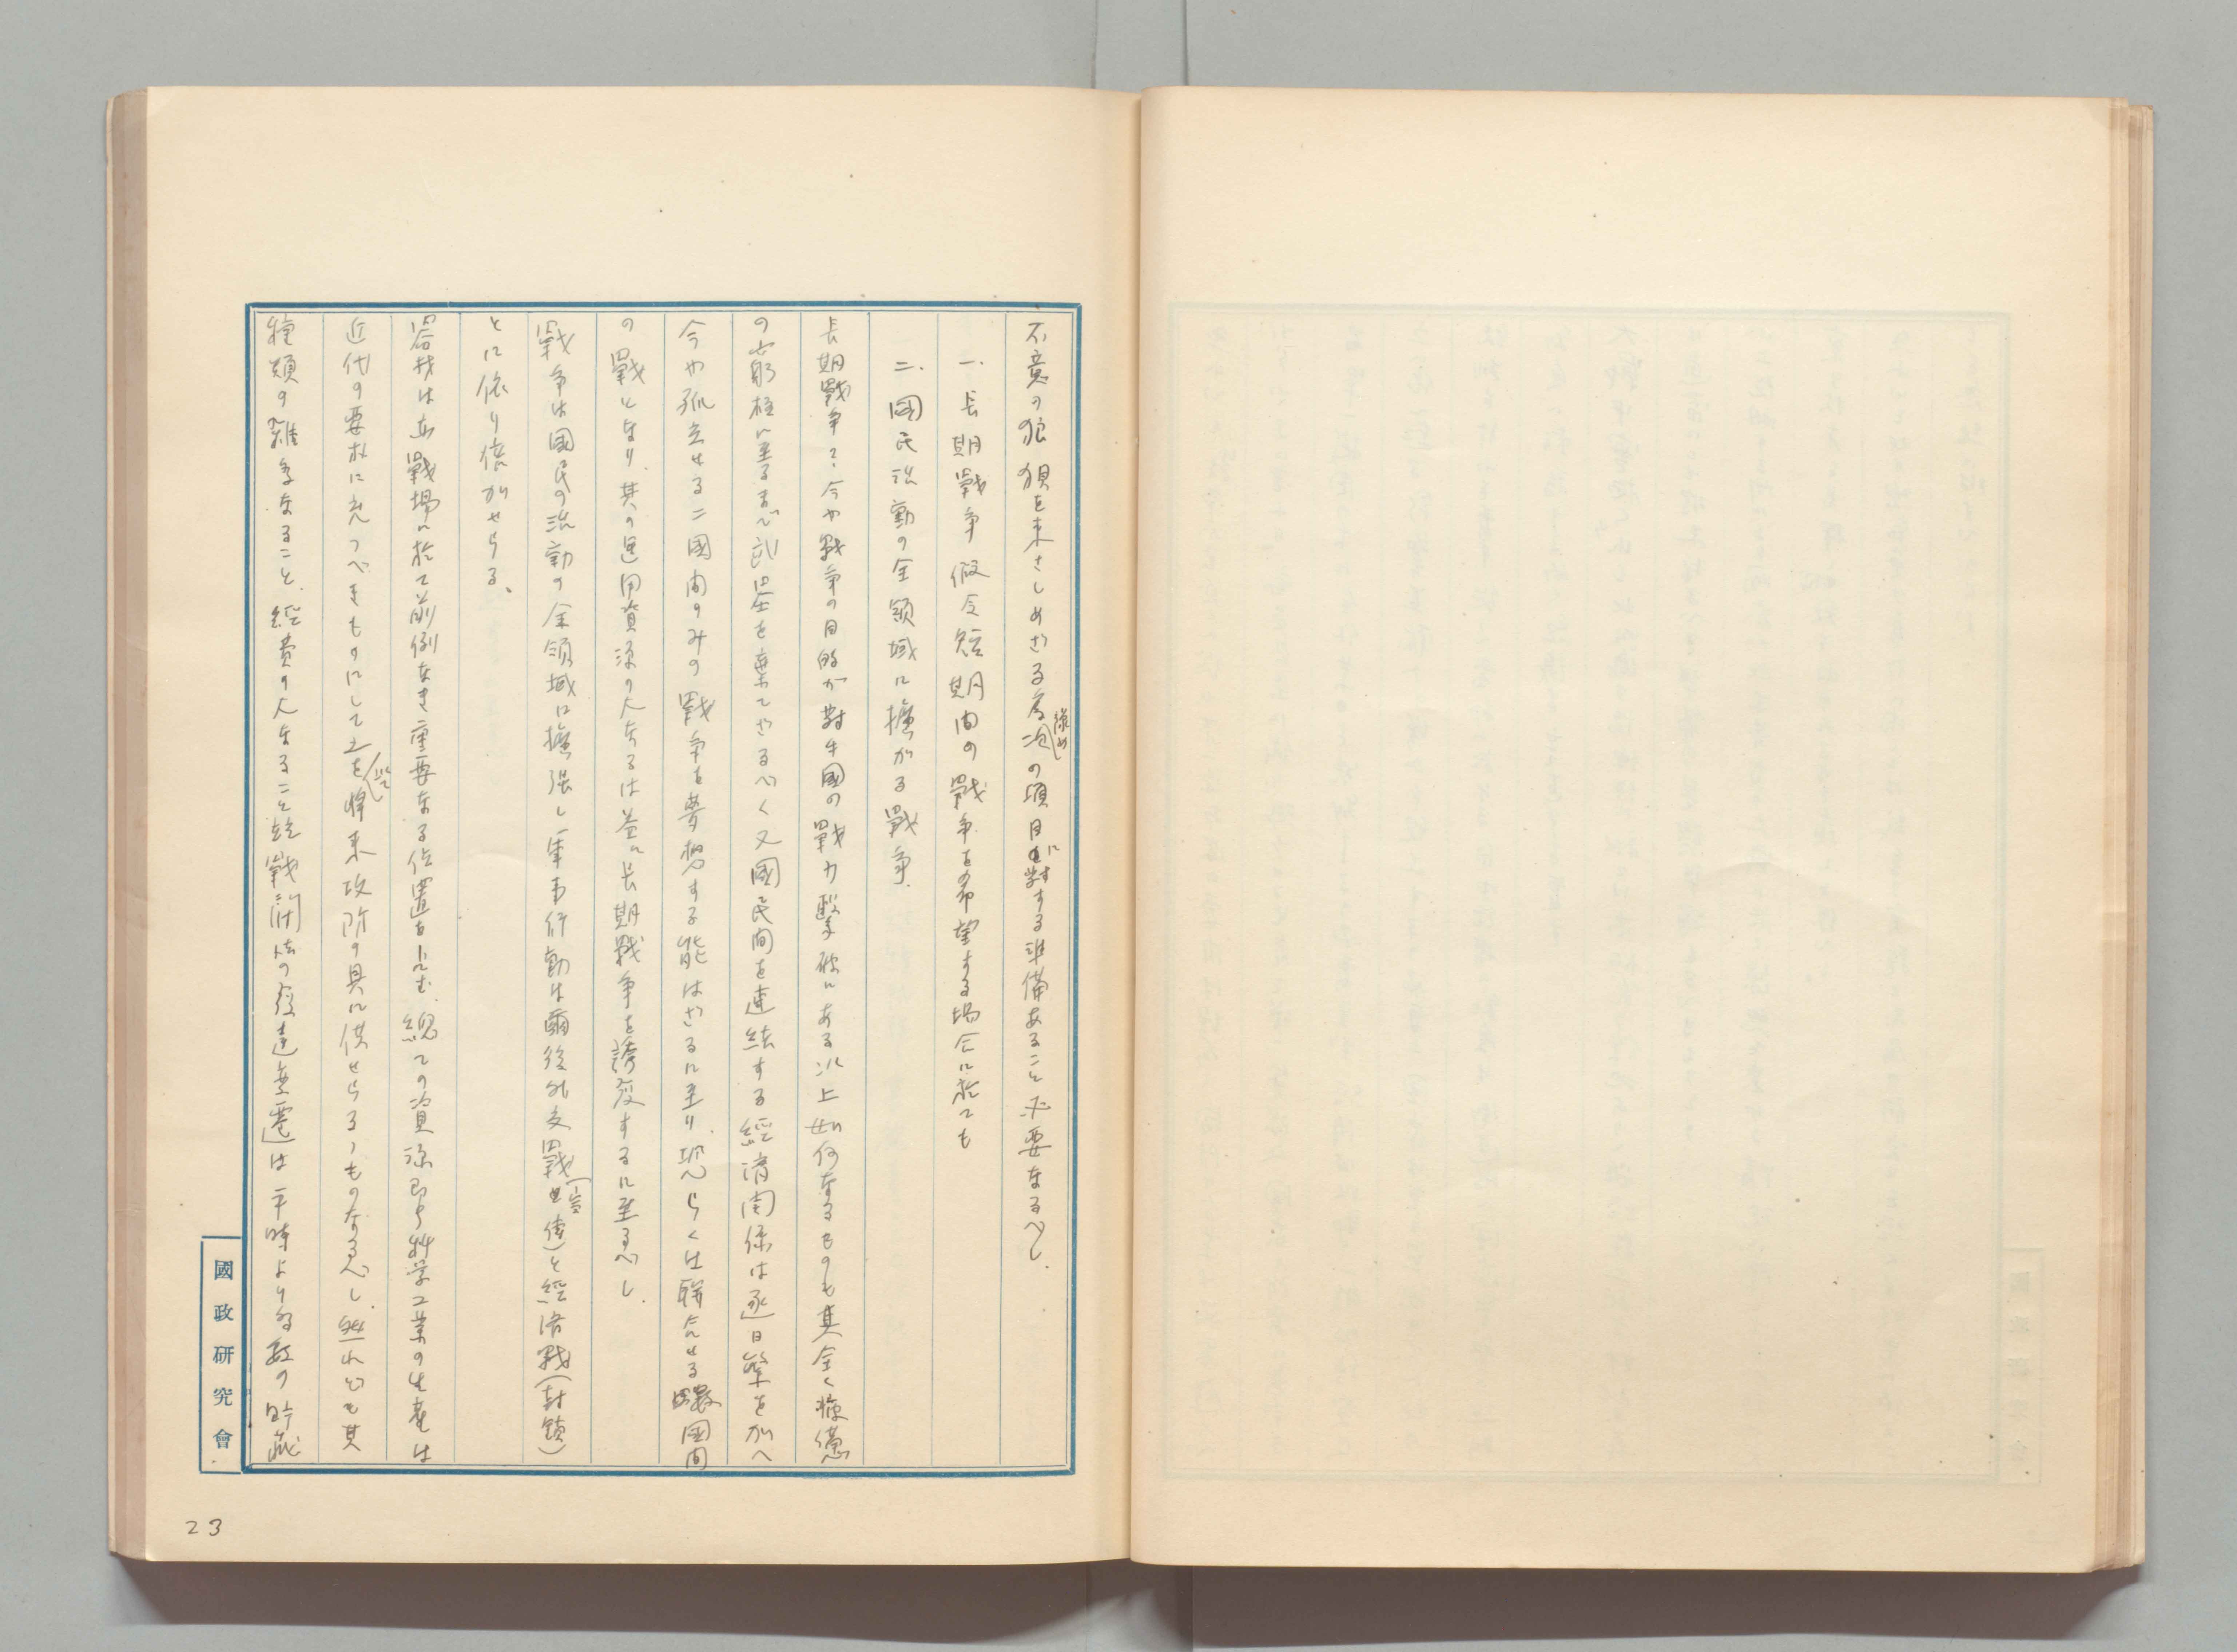 不意の狼狽を来さしめざる為予め次の項目に対する準備あること必要なるべし.
一. 長期戰争 假令短期间の戰争を希望する場合に於ても
二. 國民活動の全領域に擴がる戰争.
長期戰争は今や戰争の目的が对手國の戰力擊破にある以上如何なるものも其全く準備
の窮極に至るまで武器を棄てざるべく又國民间を連結する経済関係は逐日繁を加へ
今や孤立せる二國间のみの戰争を夢想する能はざるに至り. 恐らくは聯合せる國间
の戰となり. 其の運用資源の大なるは益に長期戰争を誘发するに至るべし.
戰争は國民の活動の全領域に擴張し軍事行動は爾後外交戰(宣傳)と経済戰(封鎖)
とに依り倍加せらる.
器材は戰場に於て前例なき重要なる位置を占む. 總ての資源即ち科学工業の生産は
近代の要求に充つべきものにして之を以て将来攻防の具に供せらるゝものなるべし. 然れども其
種類の雑多なること. 経費の大なること 戰闘法の発達変遷は平時より多数の貯蔵
國政研究會
23